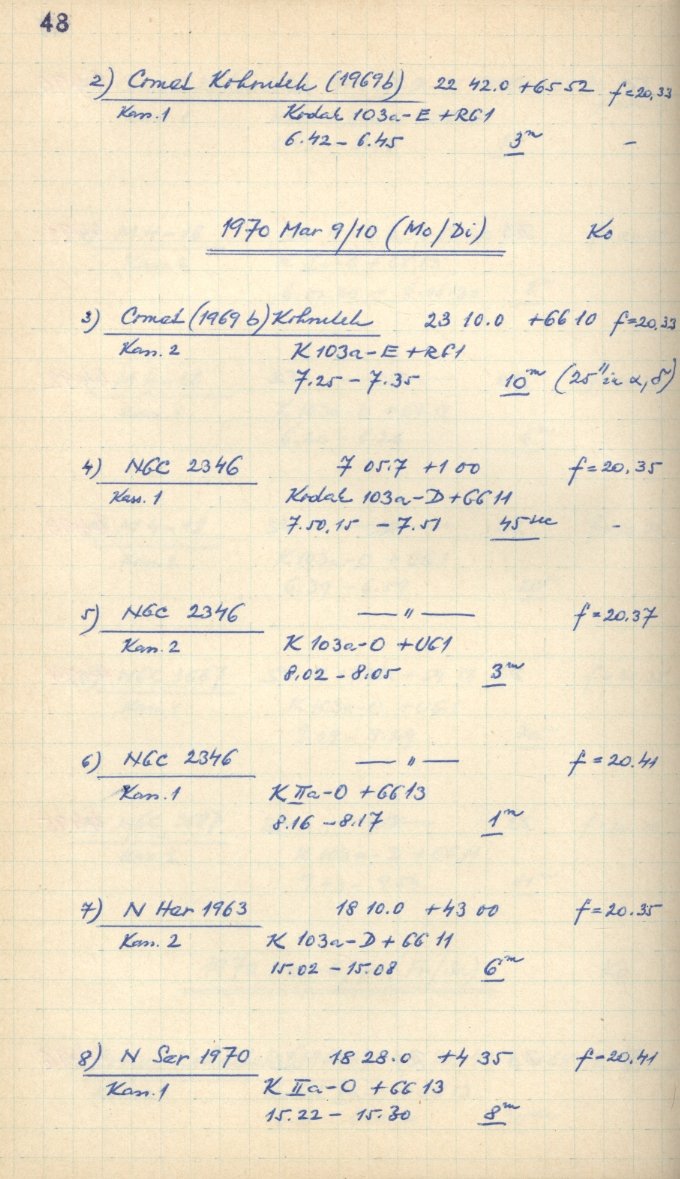 48
2) Comet Kohoutek (1969b) 22 42.0 +65 52 f=20,33
Kass.1 Kodak 103a-E +RG1
6.42 - 6.45 3m -
1970 Mar 9/10 (Mo/Di) Ko
3) Comet (1969 b) Kohoutek 23 10.0 +66 10 f=20,33
Kass. 2 K 103a-E +RG1
7.25 - 7.35 10m (25" in α, δ)
4) NGC 2346 7 05.7 +1 00 f=20,35
Kass. 1 Kodak 103a-D+GG11
7.50,15 - 7.51 45sec -
5) NGC 2346 — " — f=20.37
Kass. 2 K 103a-O +UG1
8.02 - 8.05 3m
6) NGC 2346 — " — f=20.41
Kass.1 K IIa-O +GG13
8.16 - 8.17 1m
7) N Her 1963 18 10.0 +43 00 f=20.35
Kass. 2 K 103a-D+GG 11
15.02 - 15.08 6m
8) N Ser 1970 18 28.0 +4 35 f=20.41
Kass.1 K IIa-O +GG 13
15.22 - 15.30 8m